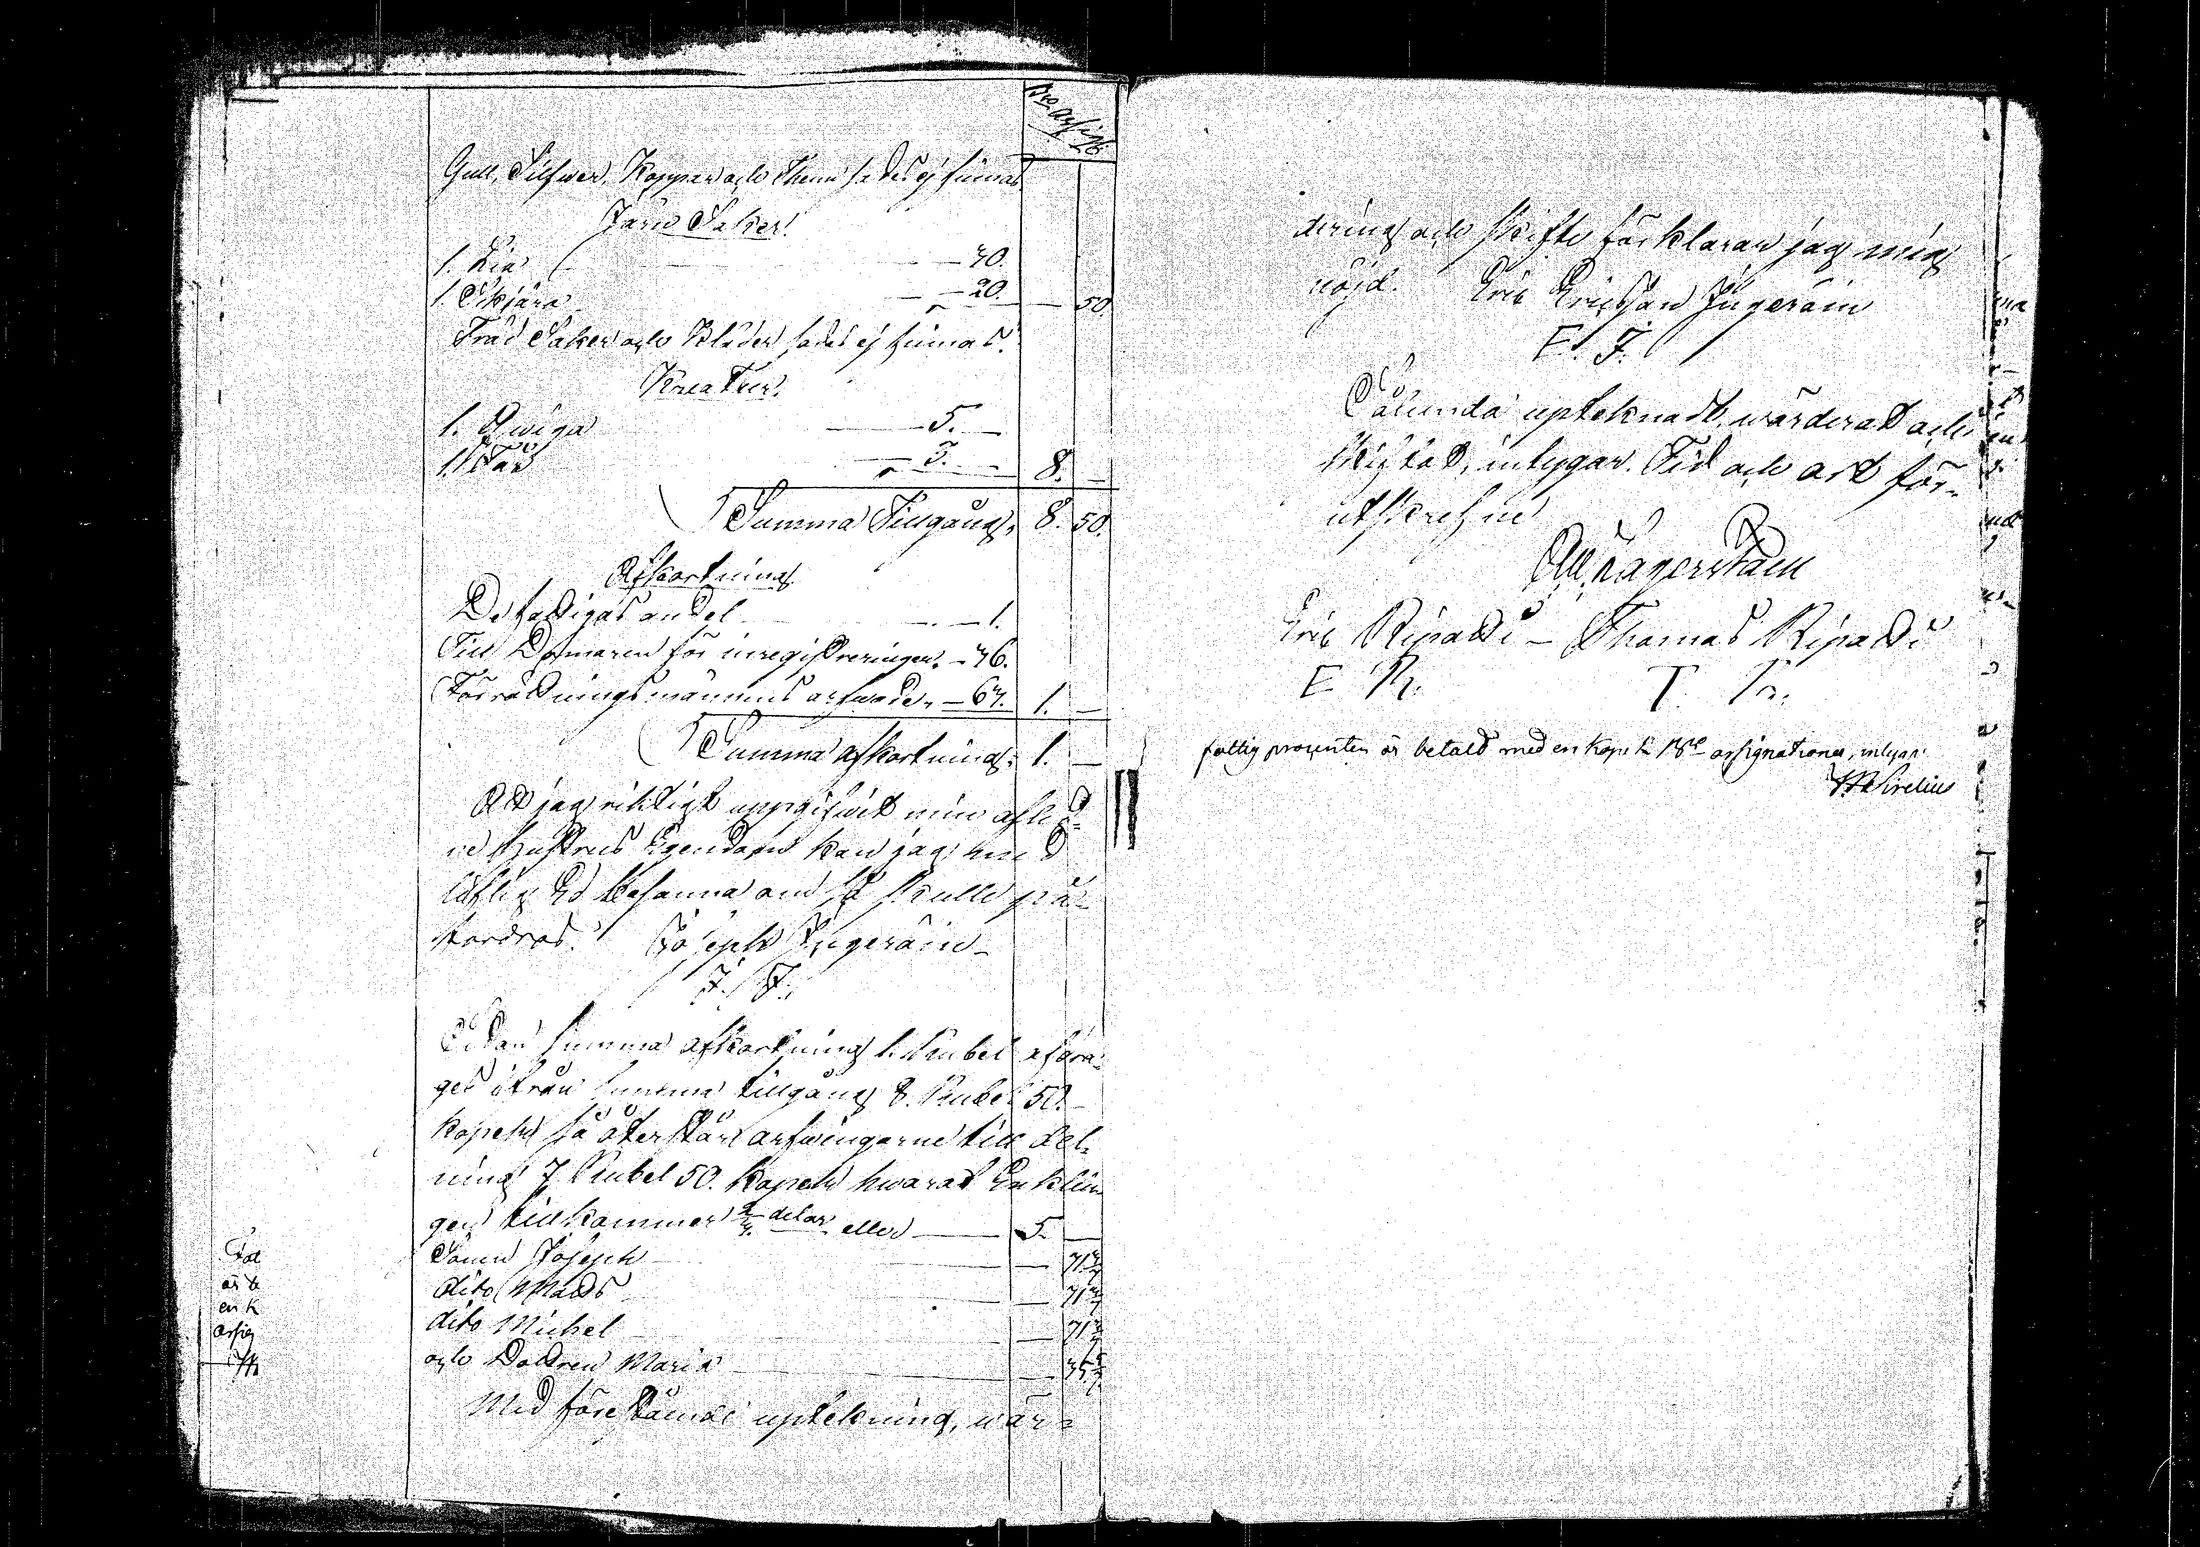 B:co assign:
Gull, Silfwer, Koppar och Thenn sades ej finnas
Järn Saker.
1. Lia — 30.
1. Skjära — 20. — 50.
Träd Saker och Kläder sades ej finnas.
Kreatur.
1. Qwiga — 5. —
1. Får — 3. — 8. —
Summa Tillgång, 8. 50.
Afkortning
De fattigas andel — 1.
Till Domaren för inregistreringen. — 36.
Förrättningsmännens arfwode, — 63. 1. —
Summa afkortning. 1. —
At jag riktigt uppgifwit min afled=
ne Hustrus Egendom kan jag med
laflig Ed besanna om så skulle på=
fordras. Joseph Ingeröin
J. I.
Sedan summa afkortning 1. Rubel afdra=
ges ifrån summa tillgång 8. Rubel 50.
kopek så återstår arfwingarne till del=
ning 7 Rubel 50. kopek hwaraf Enklin
gen tillkommer 2/3 delar eller — 5. —
Sonen Joseph — 71 3/7
dito Mads — 71 3/7
dito Michel — 71 3/7
och Dottren Maria — 35 5/7
Med förestående upteckning, wär=
Fat
är b
en k
assig
dering och skifte förklarar jag mig
nöjd. Eric Ericsson Ingeröin
E. I.
Sålunda uptecknadt, wärderat och
skiftat, intygar. Tid och ort för=
utskrefne
Eric Ripatti — Thomas Ripatti
E R. T. R.
fattig procenten är betald med en kopek B:co assignationer, intygar
Sirelius